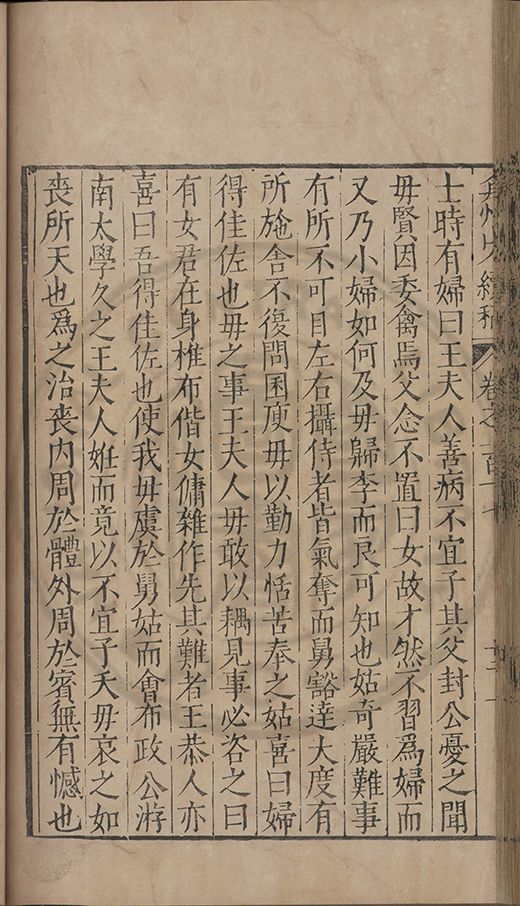 弇州山人續稿 卷之一百十七 十三
士時有婦曰王夫人善病不宜子其父封公憂之聞
毋賢因委禽焉父念不置曰女故才然不習爲婦而
又乃小婦如何及毋歸李而良可知也姑奇嚴難事
有所不可目左右攝侍者皆氣奪而舅豁達大度有
所施舍不復問困庾毋以勤力恬苦奉之姑喜曰婦
得佳佐也毋之事王夫人毋敢以耦見事必咨之曰
有女君在身椎布偕女傭雜作先其難者王恭人亦
喜曰吾得佳佐也使我毋虞於舅姑而會布政公游
南太學久之王夫人姙而竟以不宜子夭毋哀之如
喪所天也爲之治喪内周於體外周於賓無有憾也